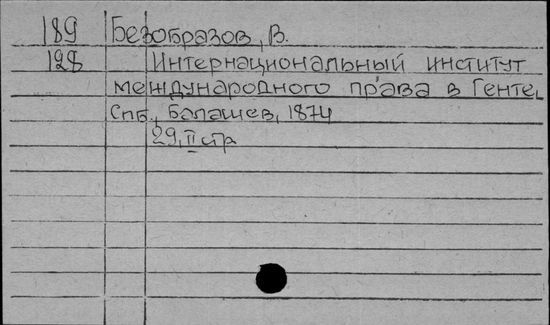 189 Безобразов, В.
128 Интернациональный институт
международного права в Генте.
Спб., Балашев, 1874
29, II стр